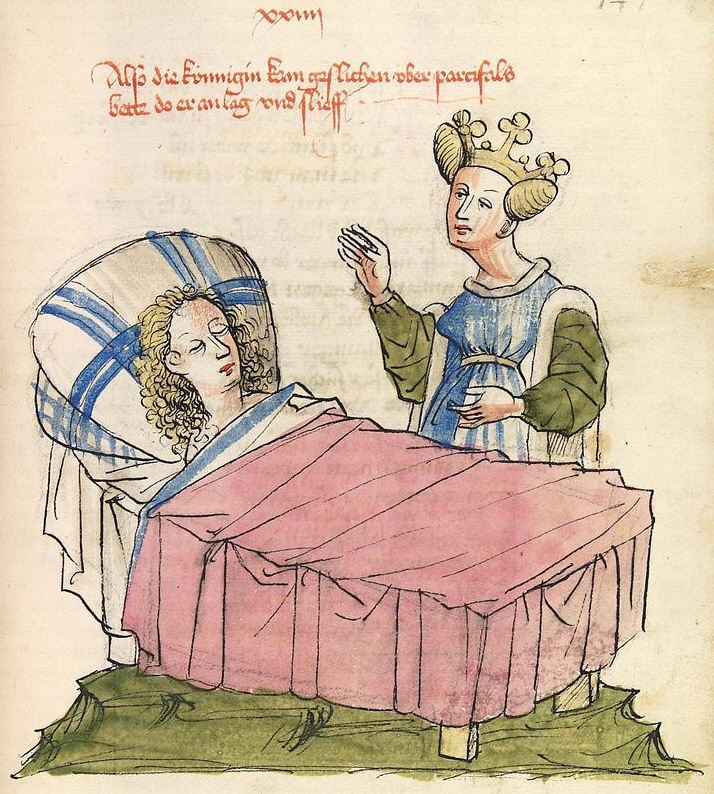 xxiiii
Also die kónnigin kam geslichen vber parcifals
bette do er an lag vnd slieff